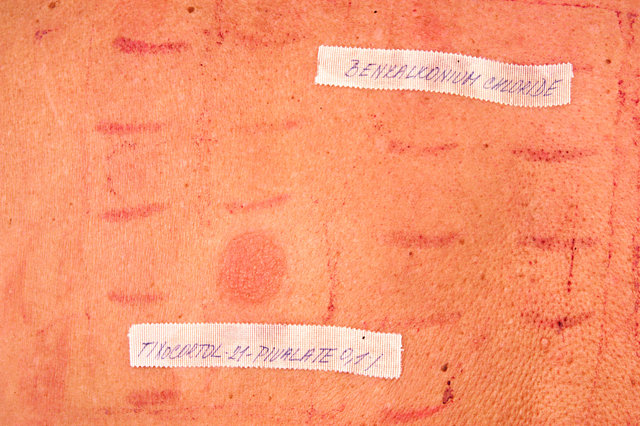 BENZALKONIUM CHLORIDE
TIXOCORTOL-21-PIVALATE 0,1%